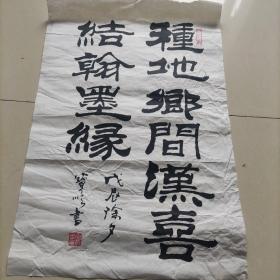 種地鄉間漢喜
結翰墨緣
戊辰除夕
書